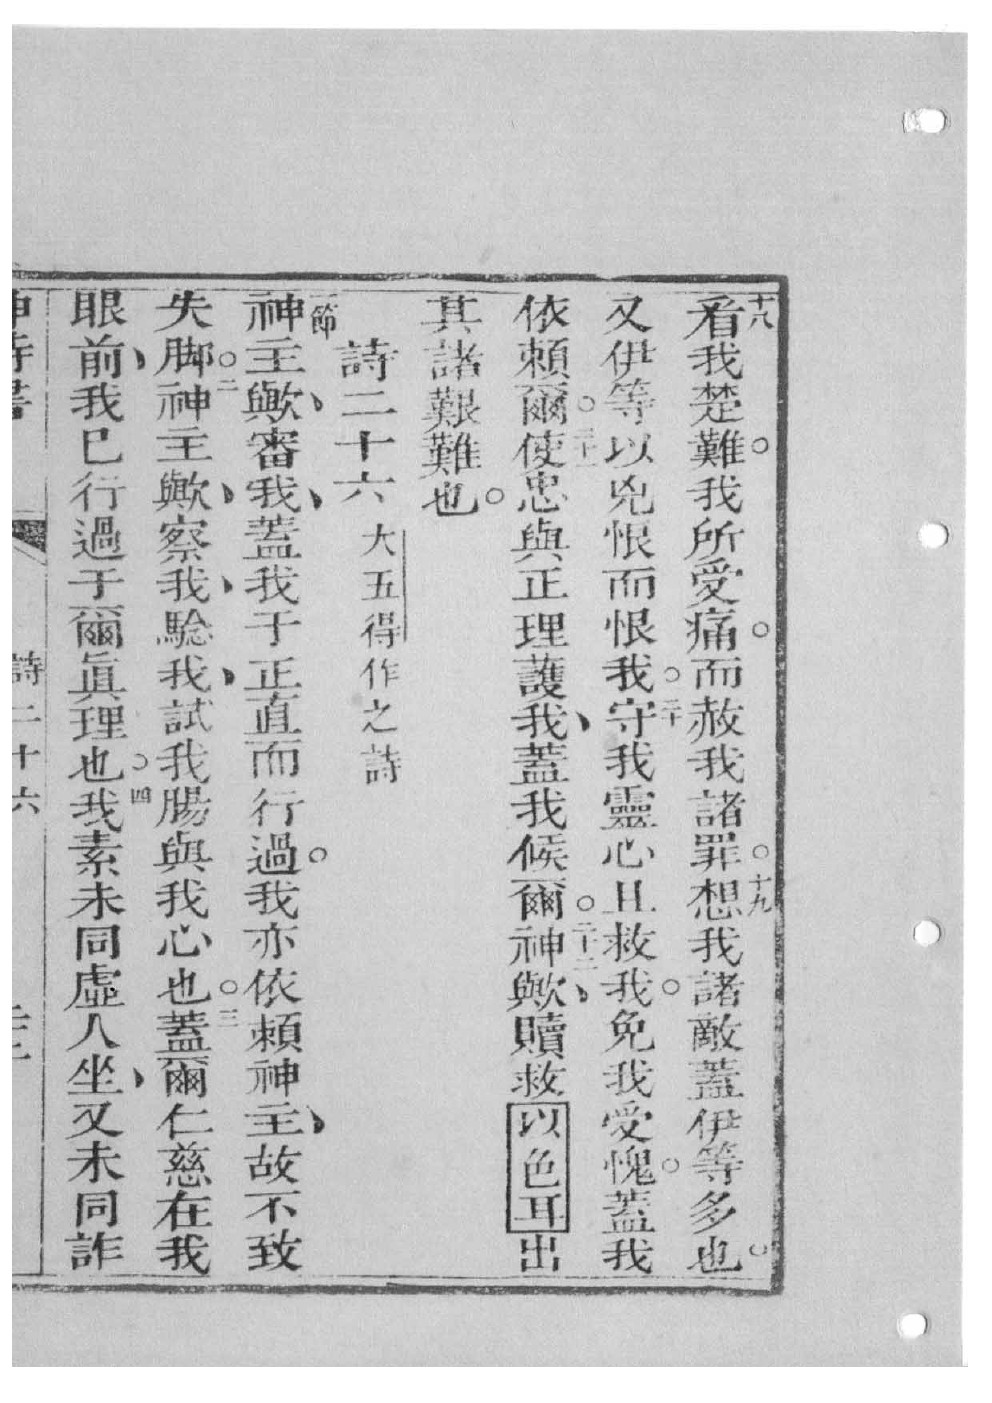 十八看我楚難。我所受痛。而赦我諸罪。十九想我諸敵蓋伊等多也。
又伊等以兇恨而恨我。二十守我靈心且救我。免我受愧。蓋我
依賴爾。二十一使忠與正理護我、蓋我候爾。二十二神歟、贖救以色耳出
其諸艱難也。
詩二十六 大五得作之詩
一節神主歟、審我、蓋我于正直而行過。我亦依賴神主、故不致
失脚。二神主歟、察我、騐我、試我腸與我心也。三蓋爾仁慈在我
眼前、我已行過于爾眞理也。四我素未同虛人坐、又未同詐
神詩書 詩二十六